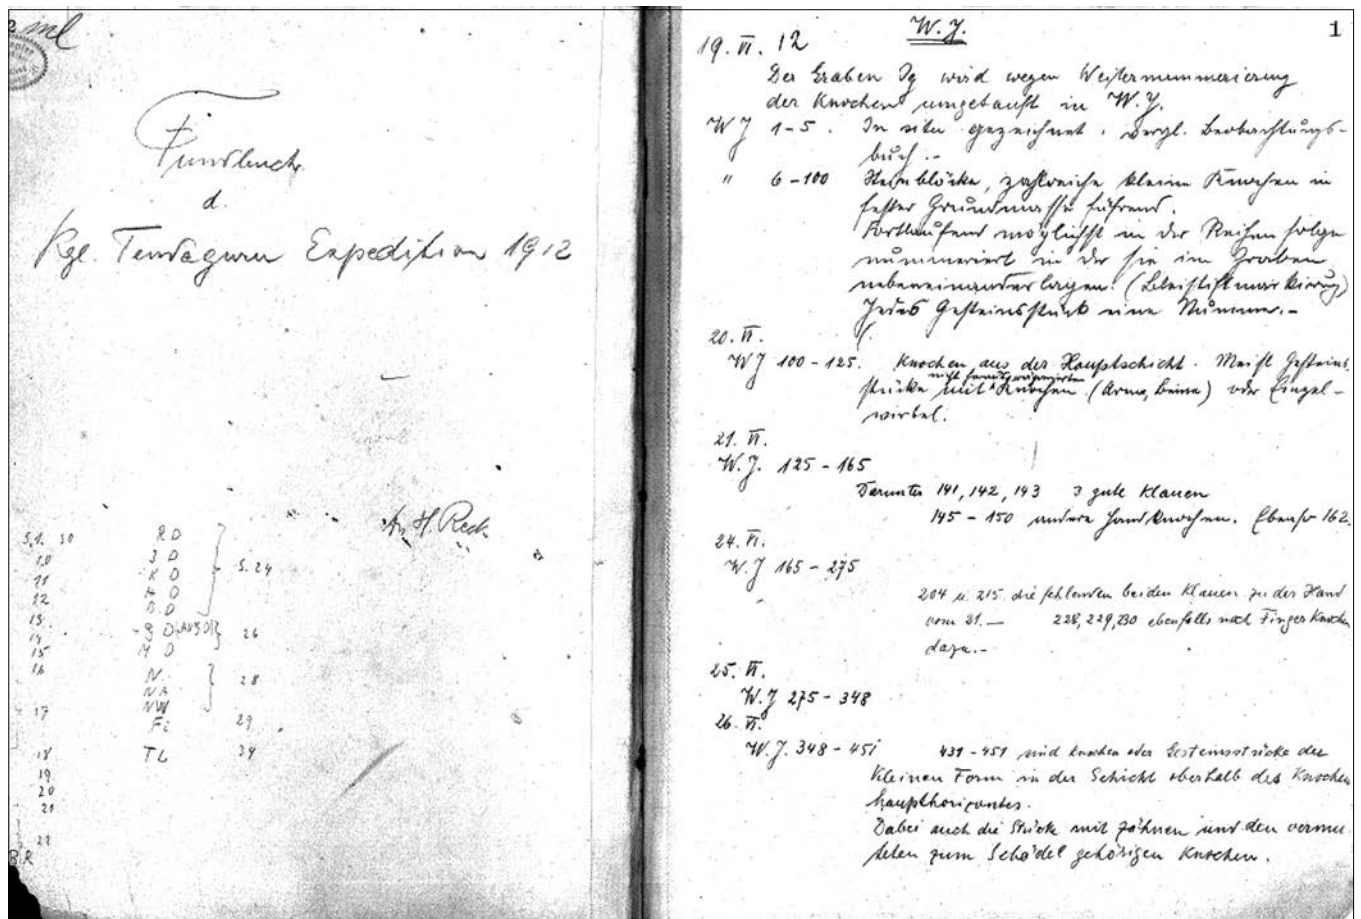 Fundbuch
d.
Kgl. Tendaguru Expedition 1912
Dr. H. Reck
R D
J D
K D
H D
S. 24
M D
26
N.
NA
NW
28
Fi
29
TL
34
10
11
12
13.
14
15
16
17
18
19
20
21
22
1
W. J.
19. VI. 12
Der Graben Ig wird wegen Weiternummerierung
der Knochen umgetauft in W. J.
W J 1-5. In situ gezeichnet. vergl. Beobachtungs-
buch.-
" 6-100 Steinblöcke, zahlreiche kleine Knochen in
fester Grundmasse führend.
Fortlaufend möglichst in der Reihenfolge
nummeriert in der sie im Graben
nebeneinander lagen. (Bleistiftmarkierung)
Jedes Gesteinsstück eine Nummer.-
20. VI.
W J 100-125. Knochen aus der Hauptschicht. Meist Gesteins
nicht herauspräparierten
stücke mit Knochen (Arme, Beine) oder Einzel-
wirbel.
21. VI.
W. J. 125-165
Darunter 141, 142, 143 3 gute Klauen
145-150 andere Handknochen. Ebenso 162.
24. VI.
W. J 165-275
204 u. 215. die fehlenden beiden Klauen zu der Hand
vom 21. — 228, 229, 230 ebenfalls noch Finger Knochen
dazu.-
25. VI.
W. J 275-348
26. VI.
W. J. 348-451 431-451 sind Knochen oder Gesteinsstücke der
Kleinen Form in der Schicht oberhalb des Knochen
haupthorizontes.
Dabei auch die Stücke mit Zähnen und den vermu
teten zum Schädel gehörigen Knochen.